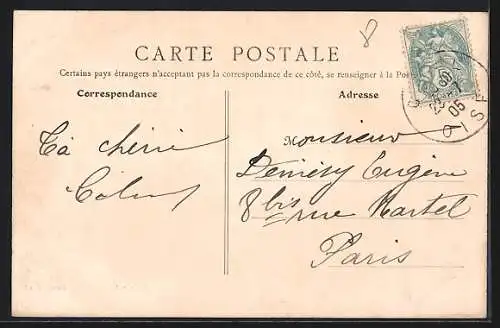 8
CARTE POSTALE
Certains pays étrangers n'acceptant pas la correspondance de ce côté, se renseigner à la Poste
Correspondance
Adresse
05
Ta chérie
Monsieur
Eugène
8 bis rue Martel
Paris